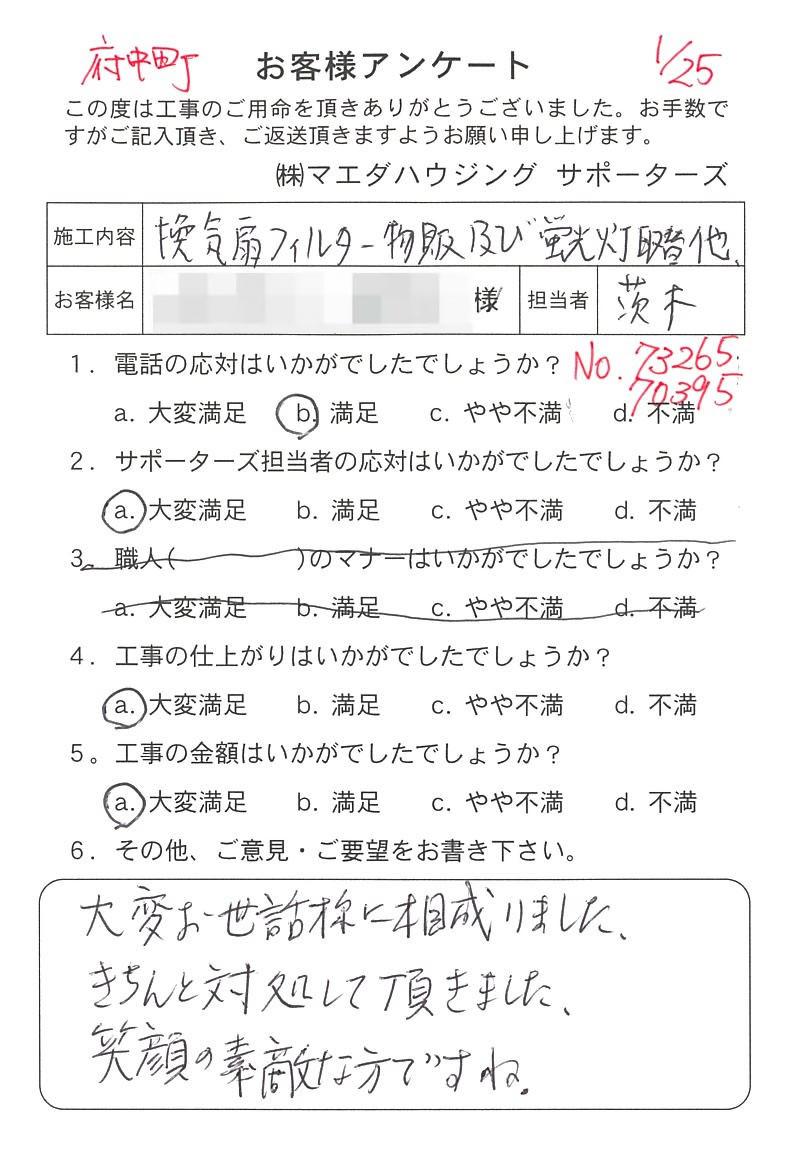 府中町 お客様アンケート 1/25
この度は工事のご用命を頂きありがとうございました。お手数で
すがご記入頂き、ご返送頂きますようお願い申し上げます。
㈱マエダハウジング サポーターズ
施工内容 換気扇フィルター物販及び蛍光灯取替他、
お客様名 様 担当者 茨木
1. 電話の応対はいかがでしたでしょうか? No. 73265
70395
a. 大変満足 b. 満足 c. やや不満 d. 不満
2. サポーターズ担当者の応対はいかがでしたでしょうか?
a. 大変満足 b. 満足 c. やや不満 d. 不満
3。職人( )のマナーはいかがでしたでしょうか?
a. 大変満足 b. 満足 c. やや不満 d. 不満
4. 工事の仕上がりはいかがでしたでしょうか?
a. 大変満足 b. 満足 c. やや不満 d. 不満
5。工事の金額はいかがでしたでしょうか?
a. 大変満足 b. 満足 c. やや不満 d. 不満
6. その他、ご意見・ご要望をお書き下さい。
大変お世話様に相成りました、
きちんと対処して頂きました、
笑顔の素敵な方ですね.